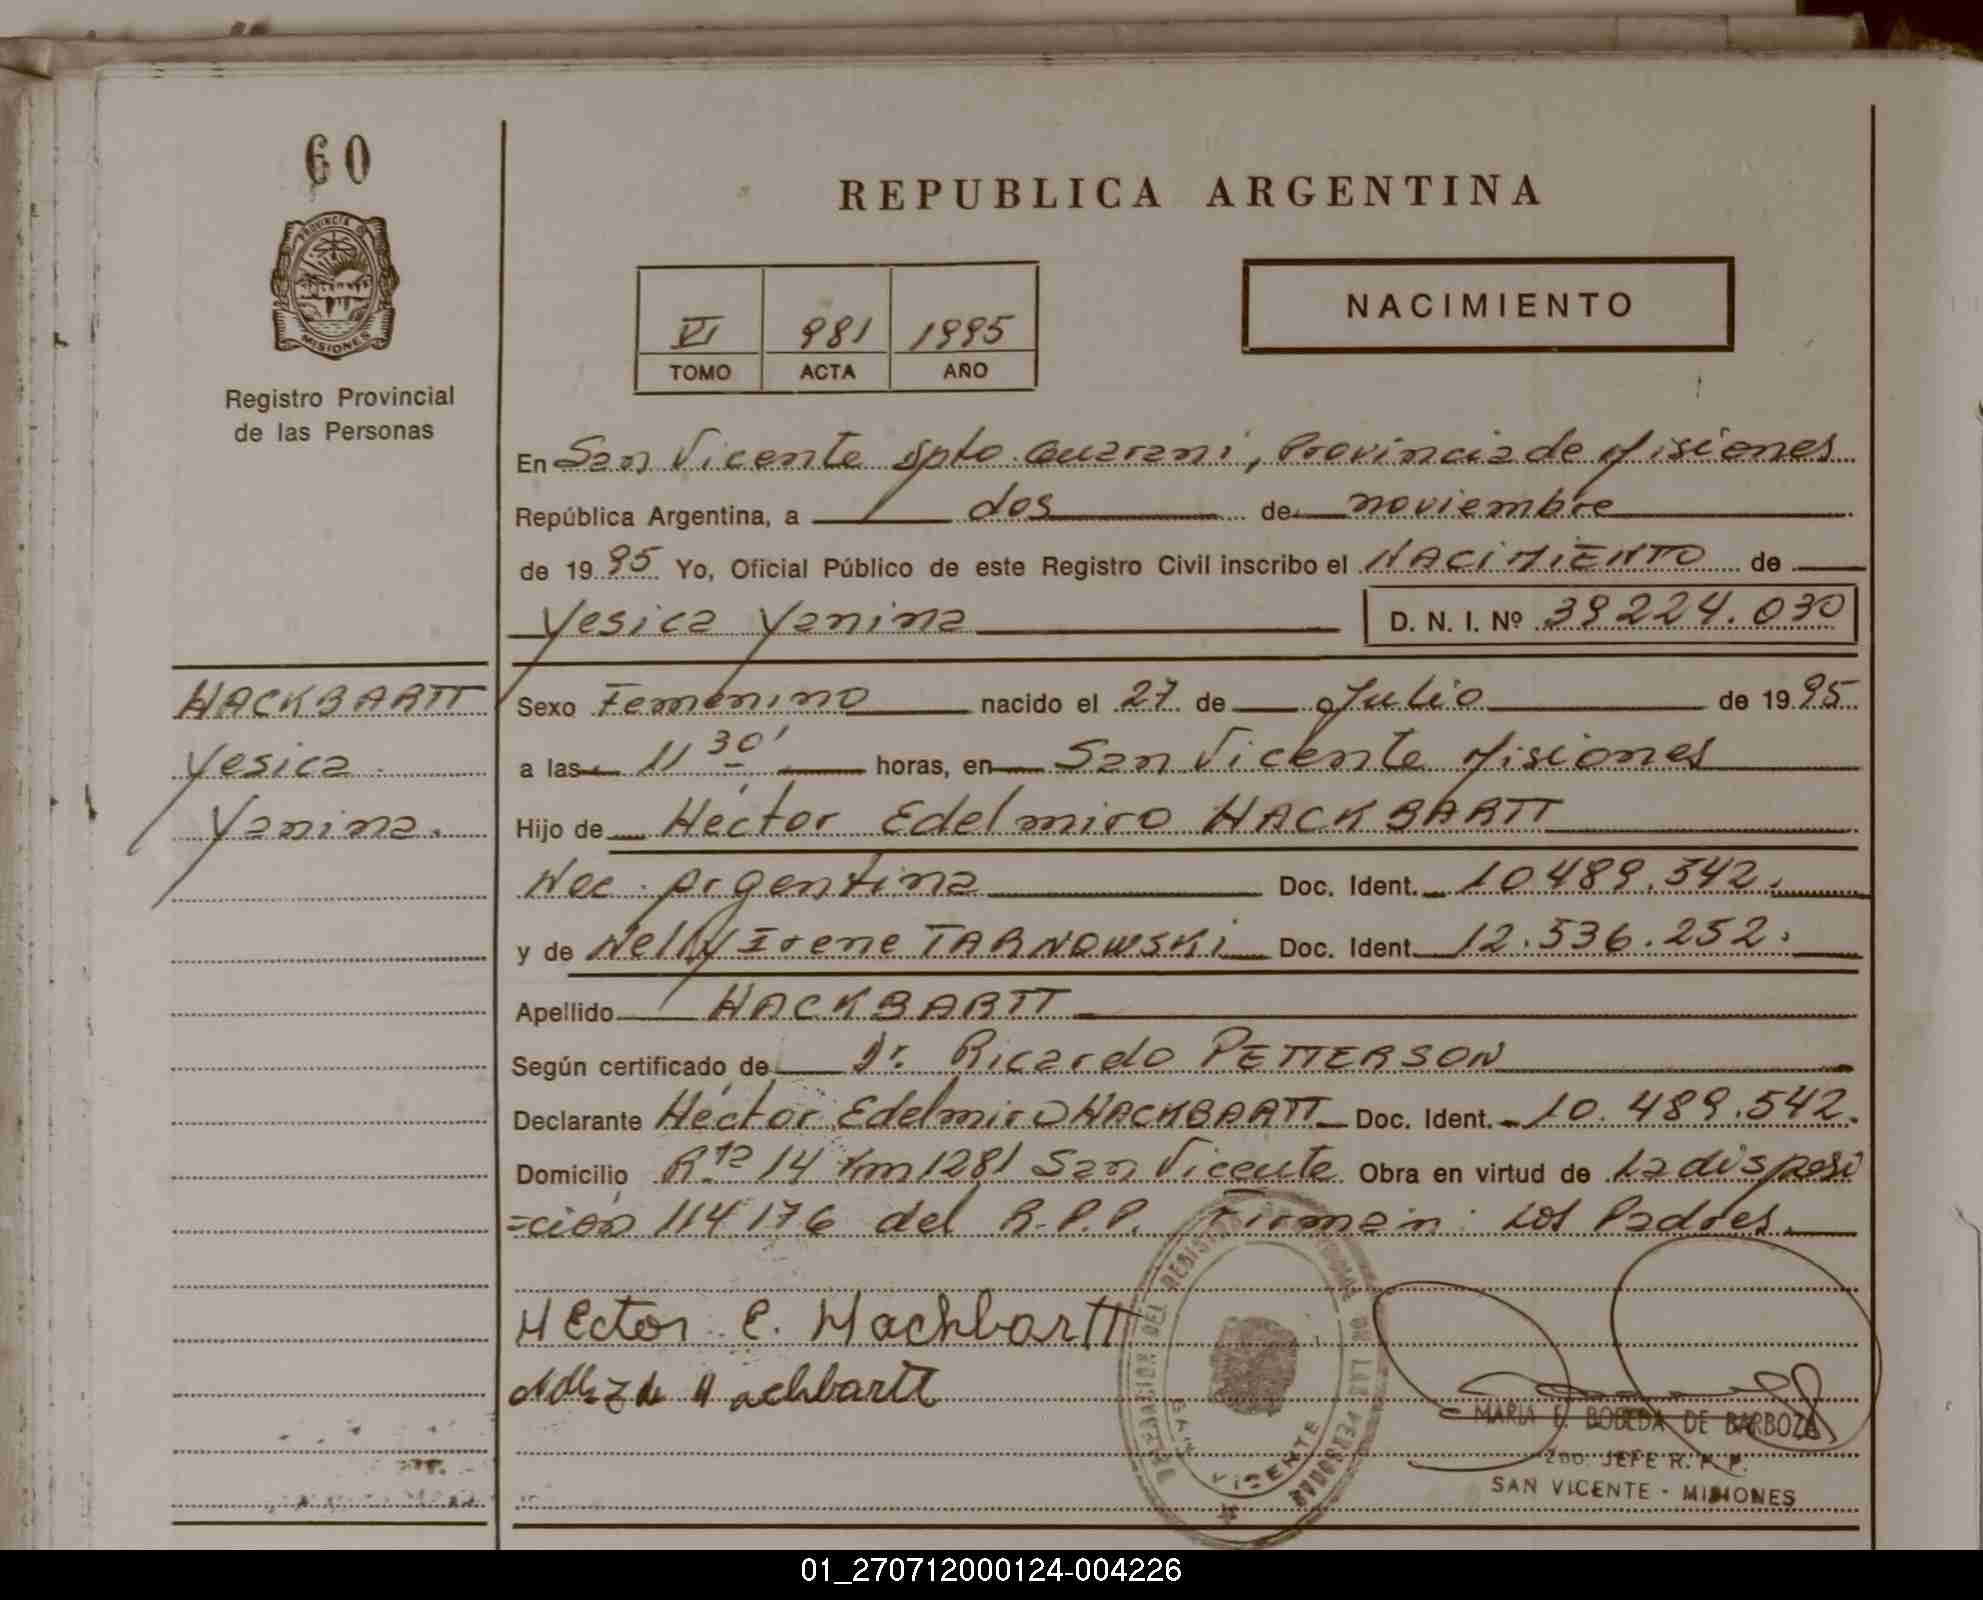 60
PROVINCIA DE
MISIONES
Registro Provincial
de las Personas
REPUBLICA ARGENTINA
VI 981 1995
TOMO ACTA AÑO
NACIMIENTO
En San Vicente Dpto. Guarani, Provincia de Misiones
República Argentina, a dos de noviembre
de 1995 Yo, Oficial Público de este Registro Civil inscribo el NACIMIENTO de
Yesica Yanina D. N. I. Nº 39224.030
HACKBARTT
Yesica
Yanina.
Sexo Femenino nacido el 27 de Julio de 1995
a las 11 30' horas, en San Vicente Misiones
Hijo de Héctor Edelmiro HACKBARTT
Nac. Argentina Doc. Ident. 10489.542.
y de Nelly Irene TARNOWSKI Doc. Ident. 12.536.252.
Apellido HACKBARTT
Según certificado de Dr. Ricardo PETTERSON
Declarante Héctor Edelmiro HACKBARTT Doc. Ident. 10.489.542.
Domicilio Rta 14 Km 1281 San Vicente Obra en virtud de La disposi
=ción 114176 del R.P.P. Firman: Los Padres.
HEctor E. Hackbartt
Hackbartt
DELEGACION DEL REGISTRO PROVINCIAL DE LAS PERSONAS
SAN VICENTE
MARIA E. BOBEDA DE BARBOZA
2do. JEFE R. P. P.
SAN VICENTE - MISIONES
01_270712000124-004226